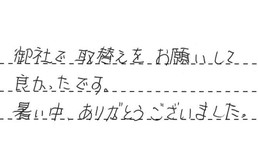 御社で取替えをお願いして
良かったです。
暑い中ありがとうございました。